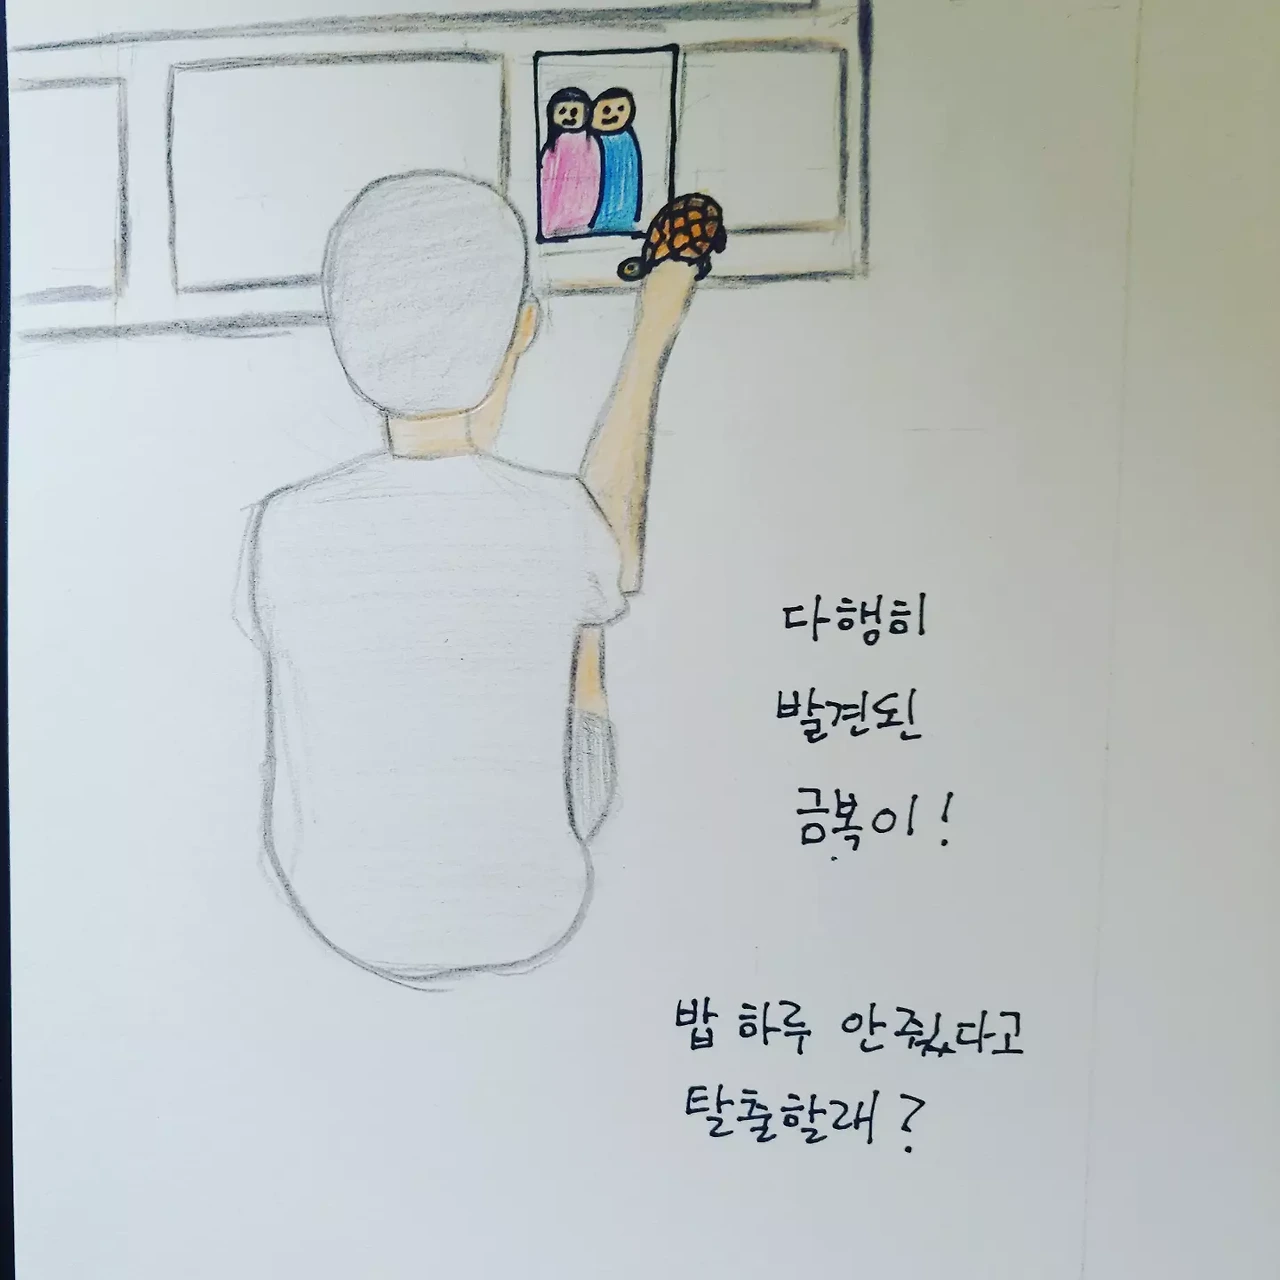 다행히
발견된
금복이!
밥 하루 안줬다고
탈출할래?